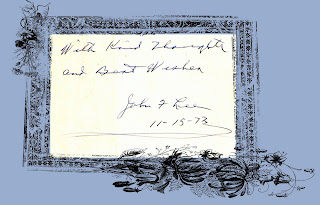 With Kind Thoughts
and Best Wishes
John F Lee
11-15-73